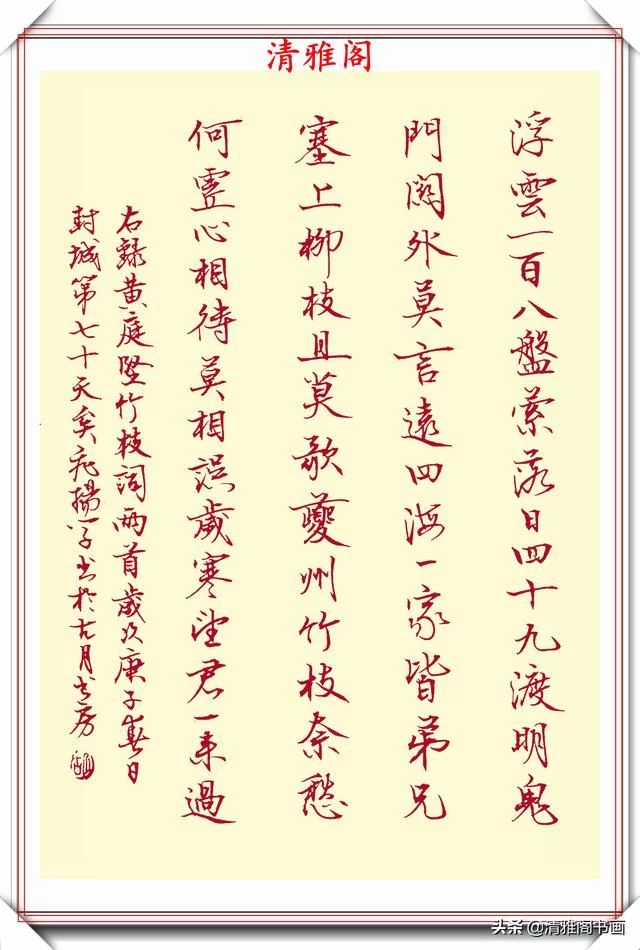 清雅阁
浮雲一百八盤縈落日四十九渡明鬼
門關外莫言遠四海一家皆弟兄
塞上柳枝且莫歌夔州竹枝奈愁
何虛心相待莫相誤歲寒望君一來過
右錄黃庭堅竹枝詞兩首歲次庚子春日
封城第七十天矣揚书於古月书房
头条 @清雅阁书画